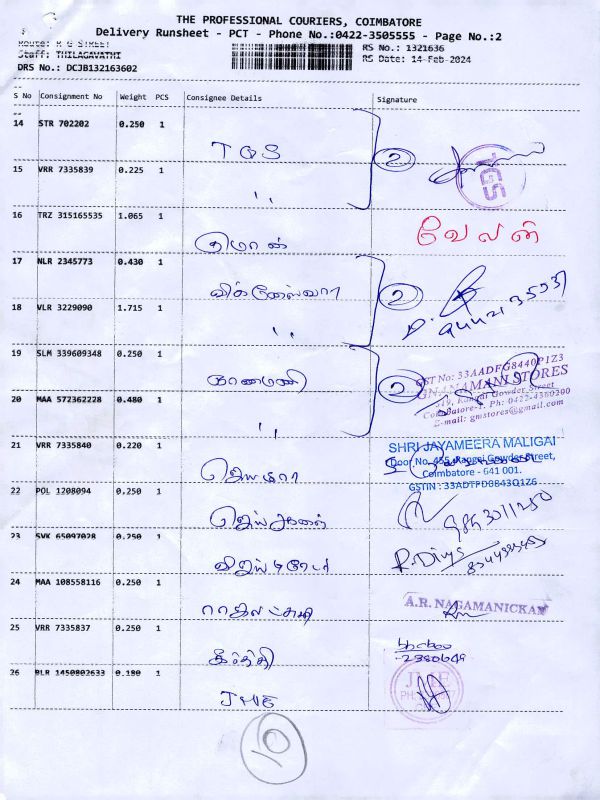 THE PROFESSIONAL COURIERS, COIMBATORE
Delivery Runsheet - PCT - Phone No.:0422-3505555 - Page No.:2
Route: R G STREET
RS No.: 1321636
Staff: THILAGAVATHI
RS Date: 14-Feb-2024
DRS No.: DCJB132163602
S No Consignment No Weight PCS Consignee Details Signature
14 STR 702202 0.250 1
TGS
2
TGS
15 VRR 7335839 0.225 1
"
16 TRZ 315165535 1.065 1
வேலன்
17 NLR 2345773 0.430 1
விக்னேஸ்வரா
2
18 VLR 3229090 1.715 1
"
19 SLM 339609348 0.250 1
ஞானமணி
2
GST No: 33AADFG8440P1Z3
GNANAMANI STORES
319, Rangai Gowder Street
Coimbatore-1. Ph: 0422-4380200
E-mail: gmstores@gmail.com
20 MAA 572362228 0.480 1
"
21 VRR 7335840 0.220 1
ஜெயமீரா
SHRI JAYAMEERA MALIGAI
Door No. 455, Rangai Gowder Street,
Coimbatore - 641 001.
GSTIN : 33ADTPD0843Q1Z6
22 POL 1208094 0.250 1
23 SVK 65097028 0.250 1
R. Divya
24 MAA 108558116 0.250 1
ராஜலட்சுமி
A.R. NAGAMANICKAM
25 VRR 7335837 0.250 1
கீர்த்தி
2380649
26 BLR 1450802633 0.180 1
JME
JME
10